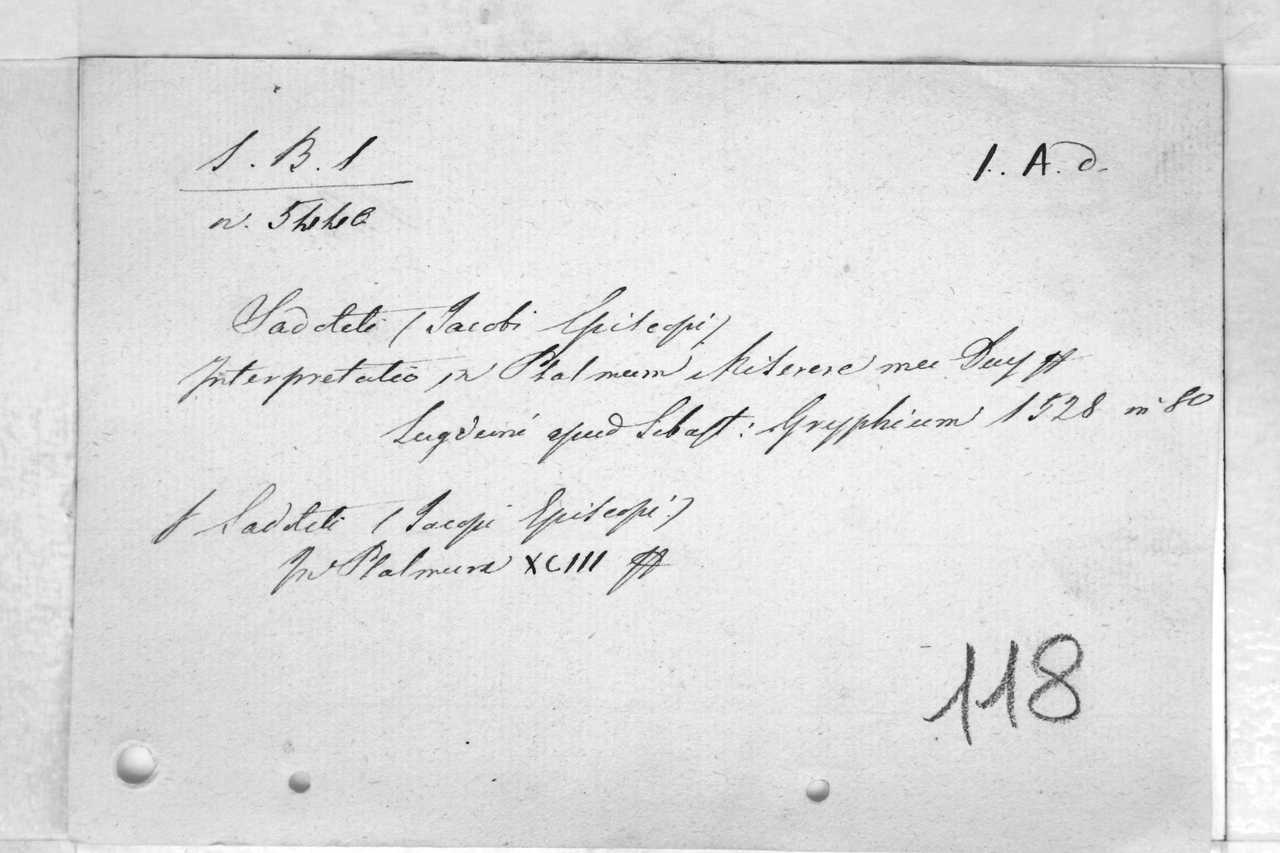 S. B. S
1. A. d.
n. 5440
Sadoleti (Jacobi Episcopi)
Interpretatio in Psalmum Miserere mei
Lugduni apud Sebast: Gryphium 1528 in 8o
Sadoleti (Jacopi Episcopi)
In Psalmum XCIII
118